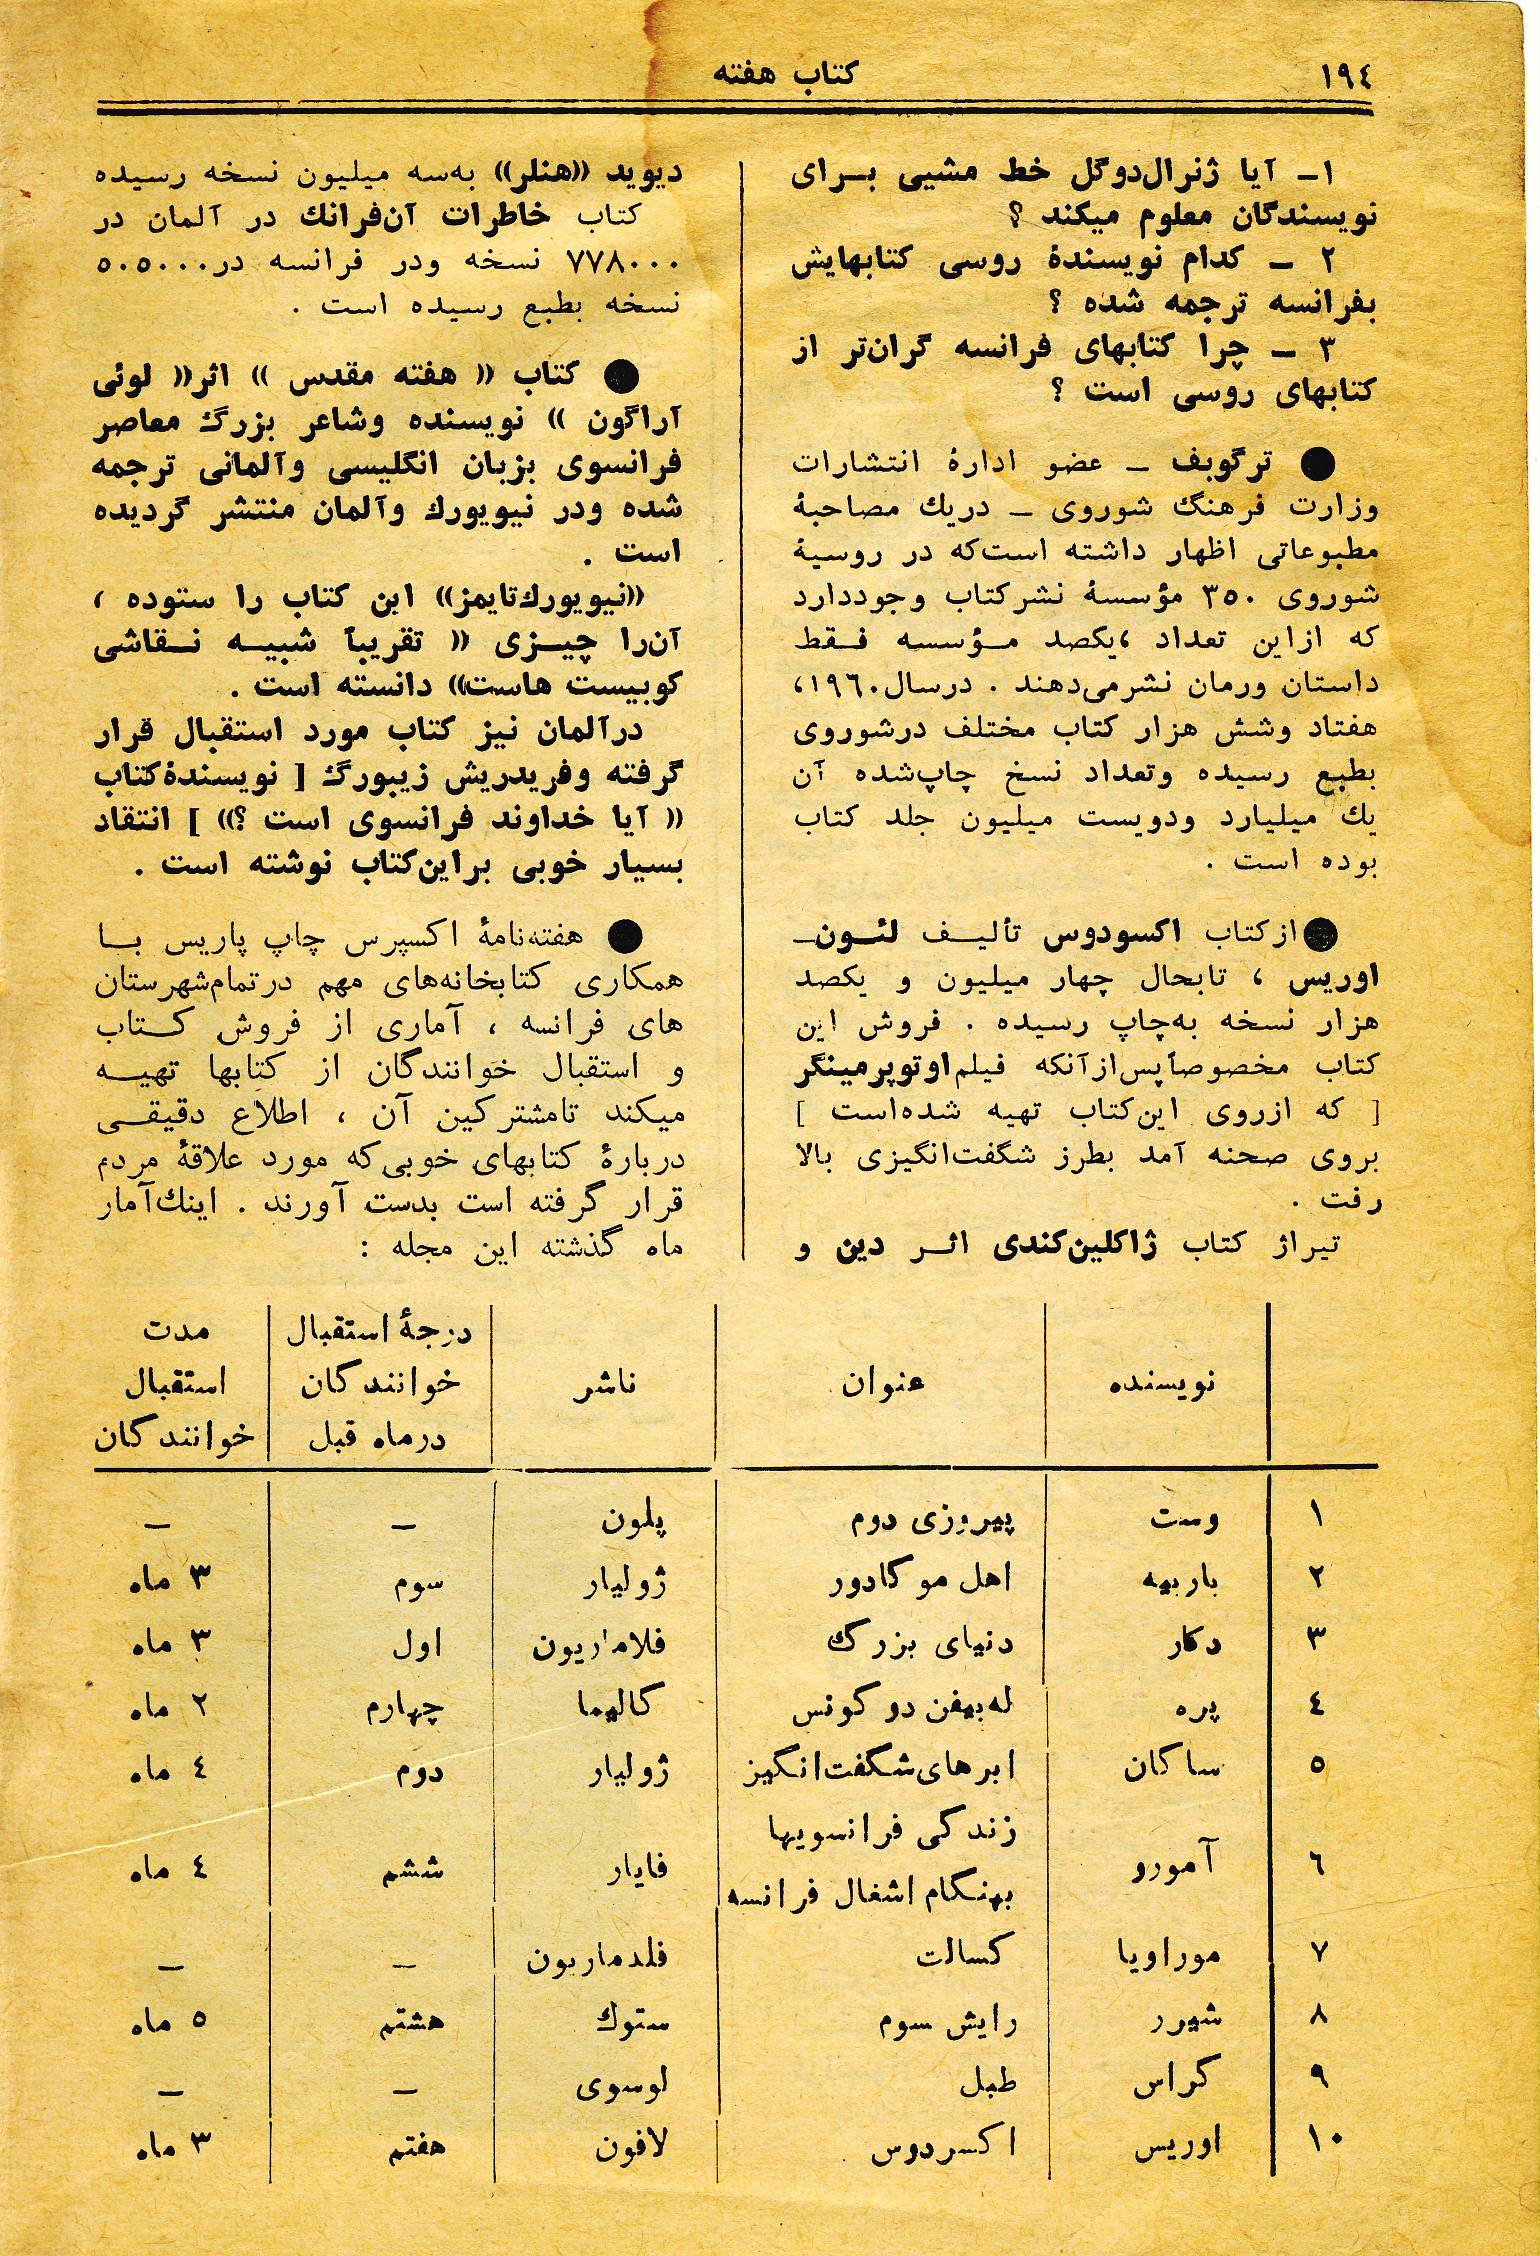 ١٩٤
کتاب هفته
١- آیا ژنرال‌دوگل خط مشیی بـرای
نویسندگان معلوم میکند ؟
٢ - کدام نویسندهٔ روسی کتابهایش
بفرانسه ترجمه شده ؟
٣ - چرا کتابهای فرانسه گران‌تر از
کتابهای روسی است ؟
● ترگوبف - عضو ادارهٔ انتشارات
وزارت فرهنگ شوروی - دریك مصاحبهٔ
مطبوعاتی اظهار داشته است‌که در روسیهٔ
شوروی ٣٥٠ مؤسسهٔ نشرکتاب وجوددارد
که ازاین تعداد ،یکصد مـؤسسه فـقط
داستان ورمان نشرمی‌دهند . درسال١٩٦٠،
هفتاد وشش هزار کتاب مختلف درشوروی
بطبع رسیده وتعداد نسخ چاپ‌شده آن
یك میلیارد ودویست میلیون جلد کتاب
بوده است .
● ازکتاب اکسودوس تألیـف لئـون-
اوریس ، تابحال چهار میلیون و یکصد
هزار نسخه به‌چاپ رسیده . فروش این
کتاب مخصوصاًپس‌ازآنکه فیلم‌اوتوپرمینگر
[ که ازروی این‌کتاب تهیه شده‌است ]
بروی صحنه آمد بطرز شگفت‌انگیزی بالا
رفت .
تیراژ کتاب ژاکلین‌کندی اثـر دین و
دیوید ((هنلر)) به‌سه میلیون نسخه رسیده
کتاب خاطرات آن‌فرانك در آلمان در
٧٧٨٠٠٠ نسخه ودر فرانسه در٥٠٥٠٠٠
نسخه بطبع رسیده است .
● کتاب (( هفته مقدس )) اثر(( لوئی
آراگون )) نویسنده وشاعر بزرگ معاصر
فرانسوی بزبان انگلیسی وآلمانی ترجمه
شده ودر نیویورك وآلمان منتشر گردیده
است .
((نیویورك‌تایمز)) این کتاب را ستوده ،
آن‌را چیـزی (( تقریباً شبیـه نـقاشی
کوبیست هاست)) دانسته است .
درآلمان نیز کتاب مورد استقبال قرار
گرفته وفریدریش زیبورگ [ نویسندهٔ‌کتاب
(( آیا خداوند فرانسوی است ؟)) ] انتقاد
بسیار خوبی براین‌کتاب نوشته است .
● هفته‌نامهٔ اکسپرس چاپ پاریس بـا
همکاری کتابخانه‌های مهم درتمام‌شهرستان
های فرانسه ، آماری از فروش کـتاب
و استقبال خوانندگان از کتابها تهیـه
میکند تامشترکین آن ، اطلاع دقیقـی
دربارهٔ کتابهای خوبی‌که مورد علاقهٔ مردم
قرار گرفته است بدست آورند . اینك‌آمار
ماه گذشته این مجله :
نویسنده عنوان ناشر درجهٔ استقبال خوانندگان درماه قبل مدت استقبال خوانندگان
١ وست پیروزی دوم پلون - -
٢ باربیه اهل موگادور ژولیار سوم ٣ ماه
٣ دکار دنیای بزرگ فلاماریون اول ٣ ماه
٤ پره له‌بیفن دوگونس گالیما چهارم ٢ ماه
٥ ساگان ابرهای‌شگفت‌انگیز ژولیار دوم ٤ ماه
٦ آمورو زندگی فرانسویها بهنگام اشغال فرانسه فایار ششم ٤ ماه
٧ موراویا کسالت فلدماریون - -
٨ شیرر رایش سوم ستوك هشتم ٥ ماه
٩ گراس طبل لوسوی - -
١٠ اوریس اکسردوس لافون هفتم ٣ ماه